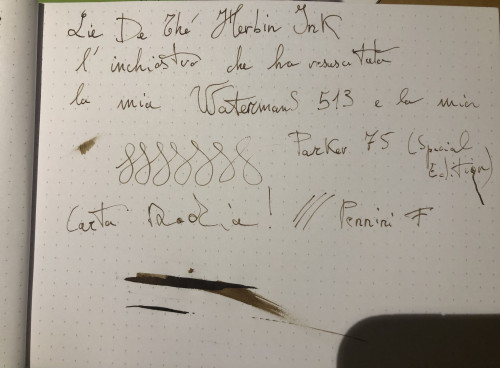 Lie De Thé Herbin Ink
l'inchiostro che ha resuscitato
la mia Watermans 513 e la mia
Parker 75 (Special
Edition)
Carta Rodia! /// Pennini F